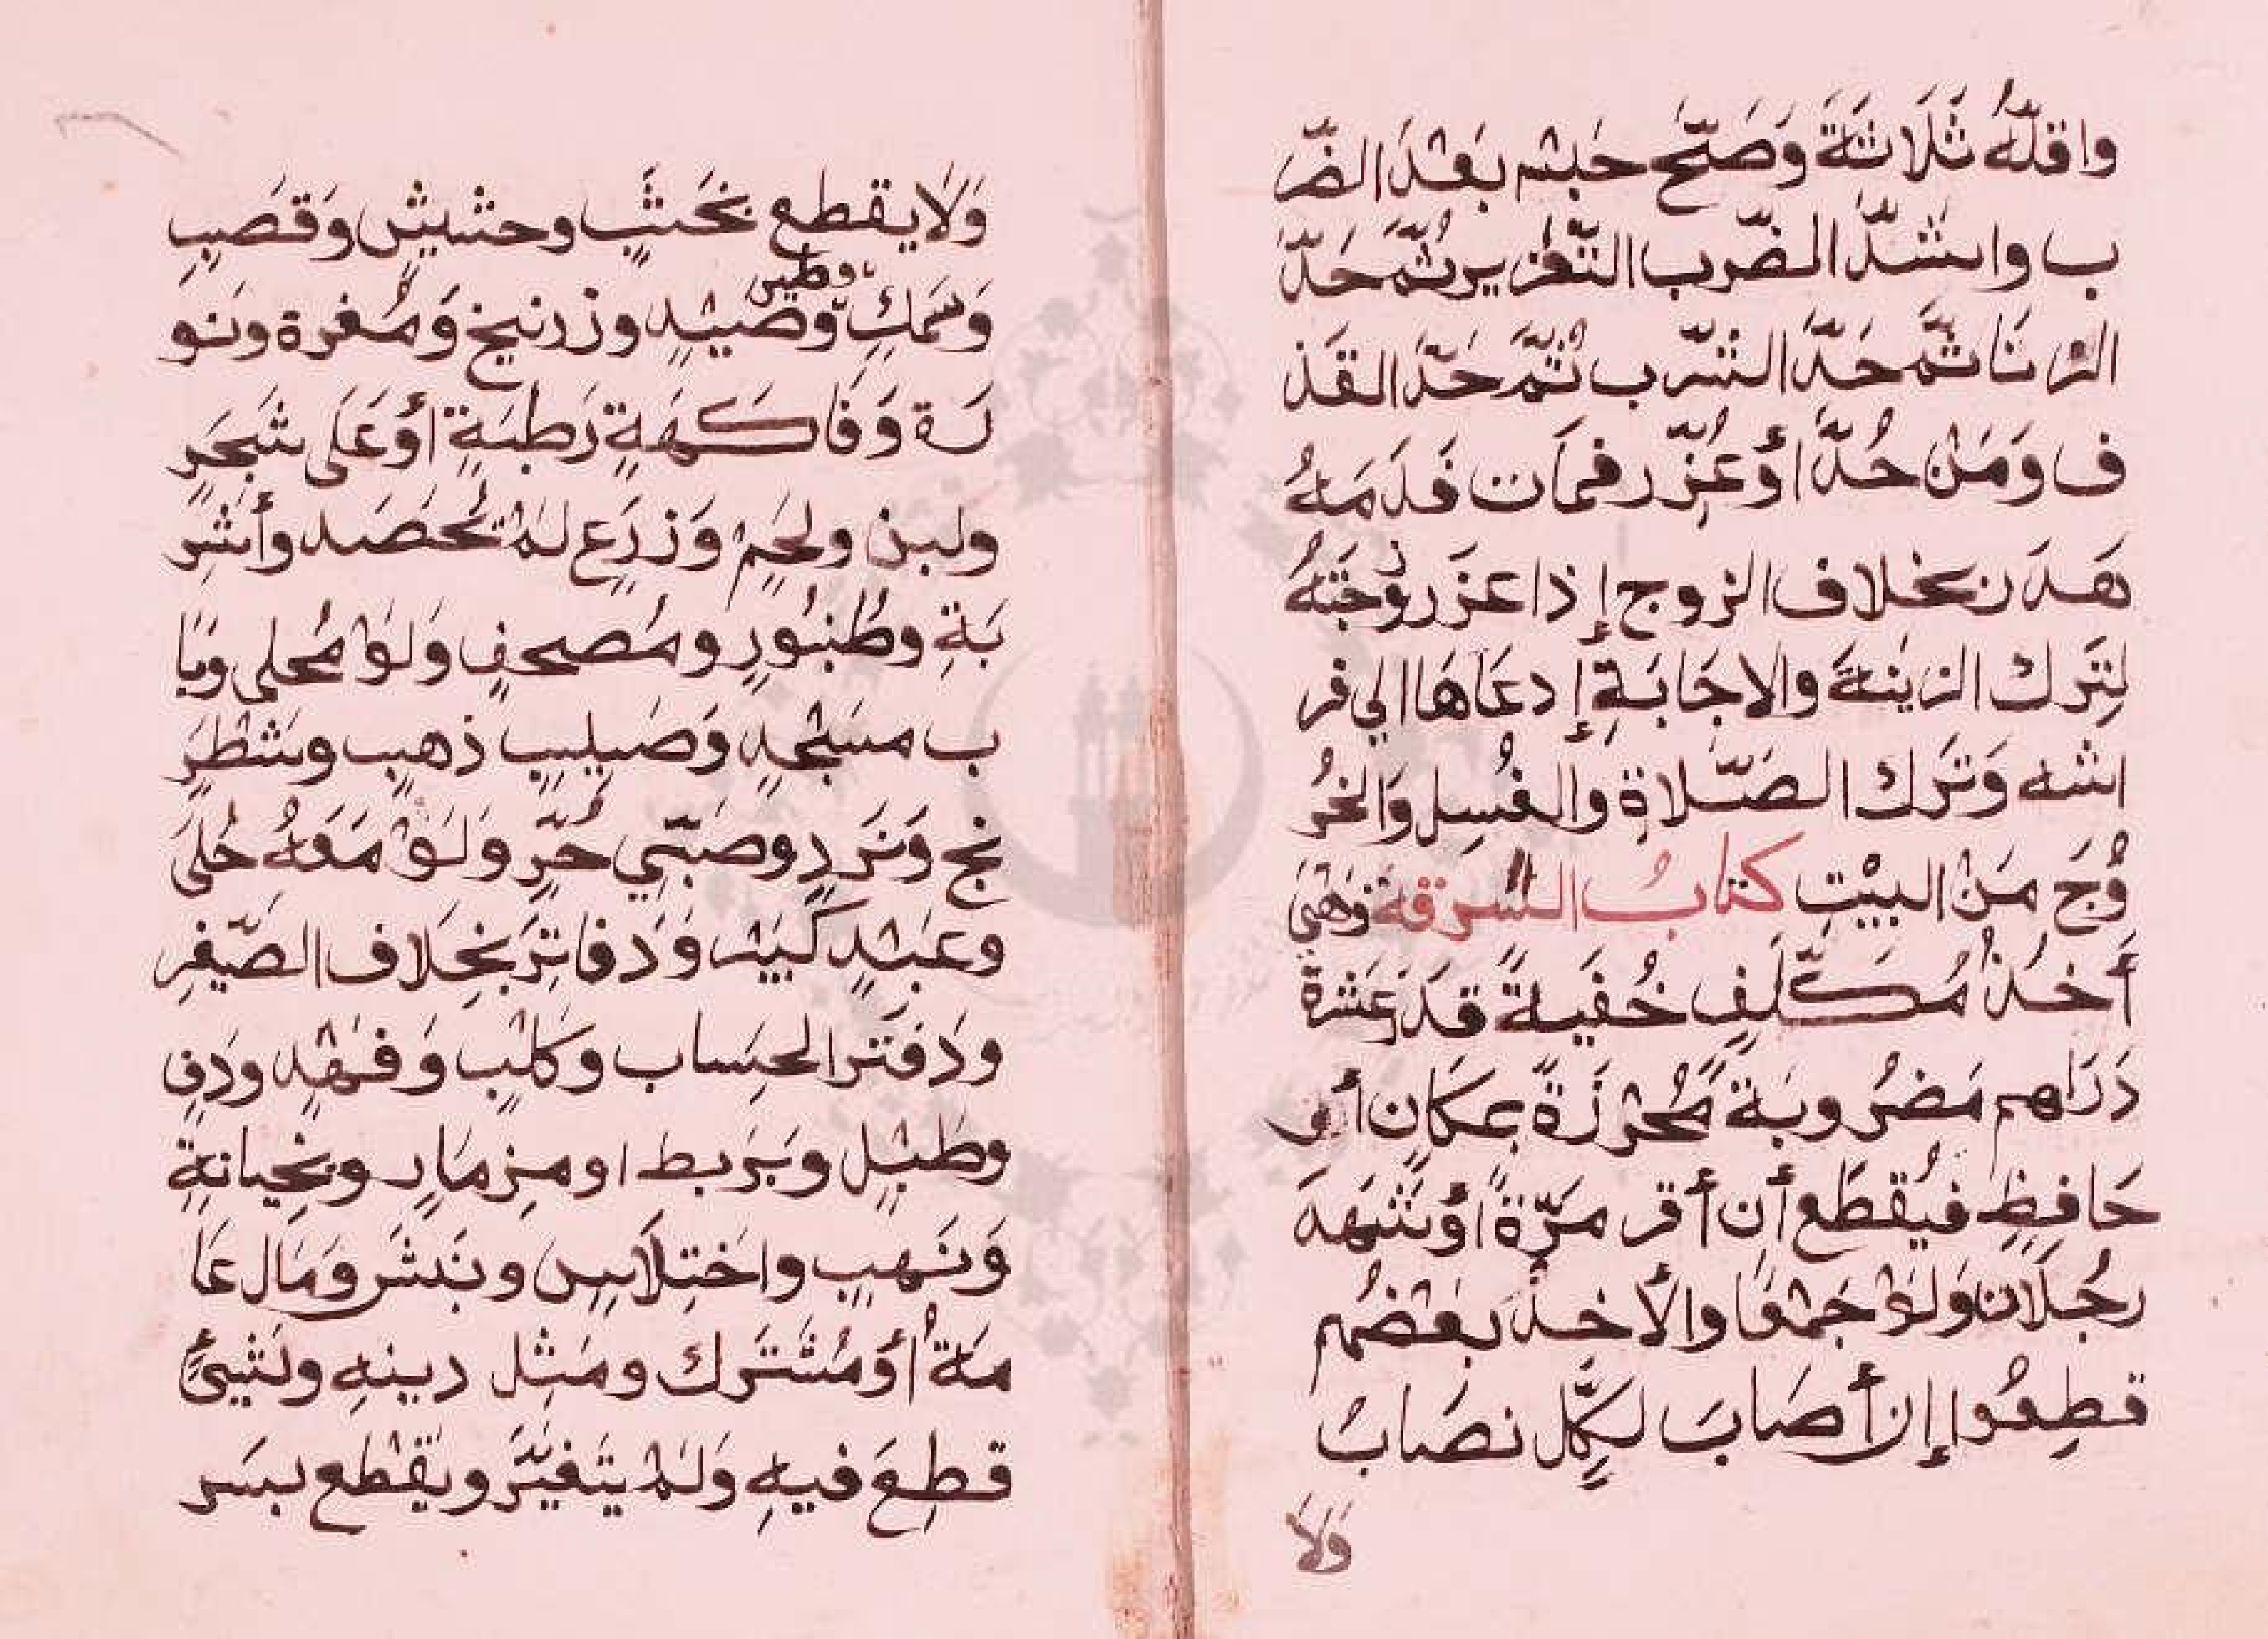 واقلّهُ ثَلَاثَةَ وَصَحّ حَبْسُ بَعْدَ الضّر
ب واشدّ الضّرب التّعْزير ثُمَّ حَدّ
الزنَا ثمَّ حَدَّ الشّرب ثُمَّ حَدّ القَذ
ف وَمَنْ حُدَّ أَوْ عُزِّر فمَات فَدَمَهُ
هَدَر بخلاف الزوج إذا عزَر زوْجَتَهُ
لِتَرَك الزيْنَةَ والاجَابَةِ إدعَاهَا الي فر
اشه وَتَرَك الصَّلاةِ والغُسِل وَالخرُ
وُجَ مَنْ البيْتِ كتابُ السَرقة وَهْيَ
أَخذُ مُكَلّفٍ خُفْيةً قدَر عَشرة
دَرَاهم مَضرُوبَة مُحْرَزَةً بمكَانِ أو
حَافِظٍ فيُقطَع أن أقر مَرّةً أوْ شَهدَ
رجُلَان وَلَوْ جَمْعًا والأخذَ بَعْضُهم
قطِعُوا إن أصَابَ لكِلّ نصَابَ
وَلَا
وَلَا يقطع بخَشَبٍ وحشيشٍ وَقصَبٍ
وَسَمكٍ وَصَيْدٍ وزرنيخ وَمُغرة ونو
وطير
رَة وَفَاكَهَةٍ رَطبَةٍ أوْ عَلَى شَجَرٍ
ولبن ولحَمٍ وَزرَعٍ لمْ تُحَصَد وأشر
بَةِ وطُنبُورٍ ومُصحفٍ وَلَوْ مُحلى وبَا
ب مسْجدٍ وَصَليبٍ ذهبٍ وشطر
نج وَنَردٍ وصَبّيٍ حُرٍّ وَلَوْ مَعَهُ حُلىَ
وعبْدٍ كبَيْر وَدَفاتِرَ بخِلَاف الصّغير
ودَفتَر الحسَاب وَكلْبٍ وَفهْدٍ ودَفٍ
وطَبْلٍ وبَرَبط او مزمَارٍ وبخيانةِ
وَنَهبٍ واخَتِلَاسٍ ونَبَشَ وَمَال عَا
مَة أوْ مُشْتَرَك ومَثِل دينهِ وبشيئٍ
قطِعَ فيهِ وَلمْ يتَغيّرَ ويُقطَع بسَر